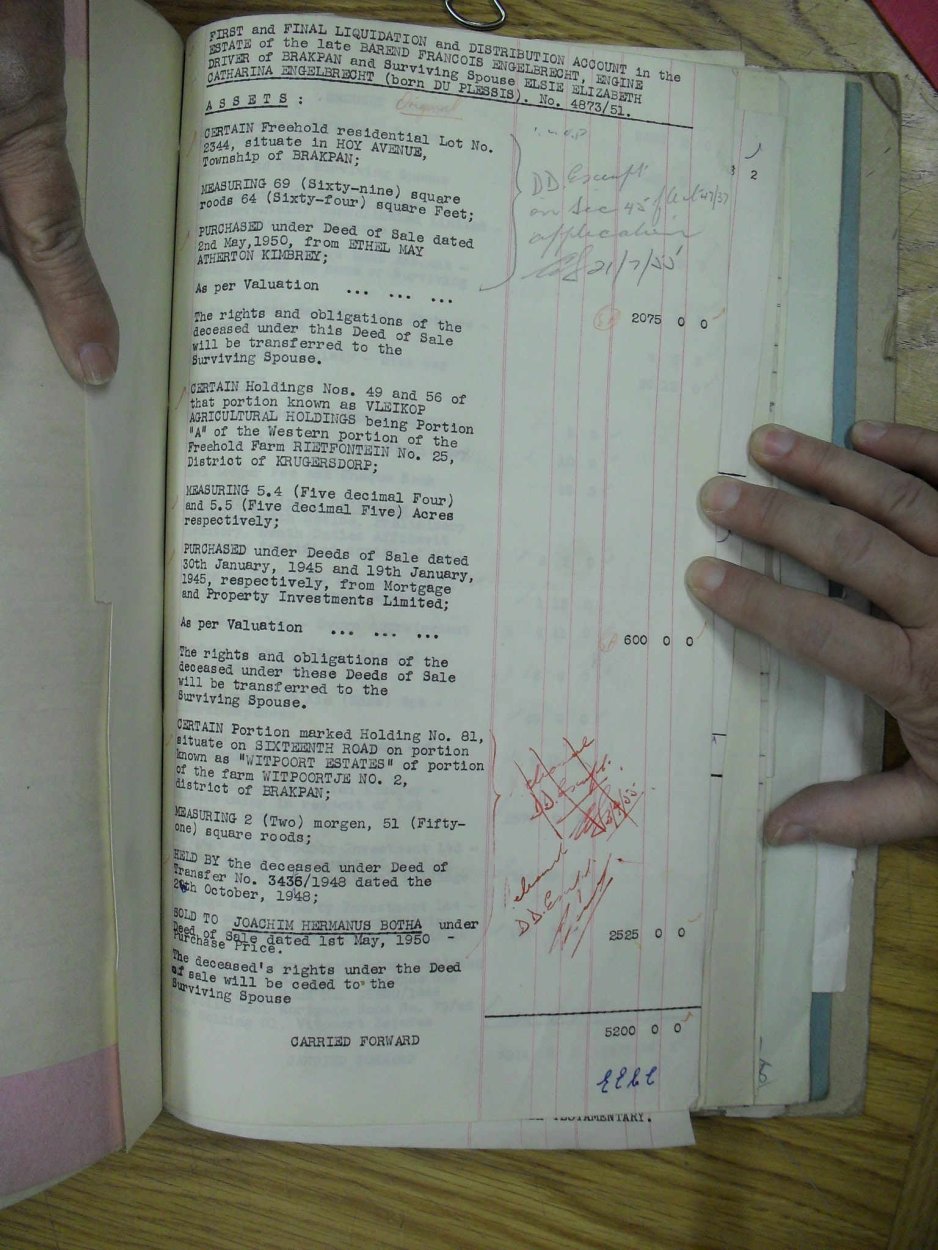 FIRST and FINAL LIQUIDATION and DISTRIBUTION ACCOUNT in the
ESTATE of the late BAREND FRANCOIS ENGELBRECHT, ENGINE
DRIVER of BRAKPAN and Surviving Spouse ELSIE ELIZABETH
CATHARINA ENGELBRECHT (born DU PLESSIS). No. 4873/51.
Original
ASSETS:
CERTAIN Freehold residential Lot No.
2344, situate in HOY AVENUE,
Township of BRAKPAN;
MEASURING 69 (Sixty-nine) square
roods 64 (Sixty-four) square Feet;
PURCHASED under Deed of Sale dated
2nd May, 1950, from ETHEL MAY
ATHERTON KIMBREY;
As per Valuation ... ... ...
DD Exempt
on Sec 45 of Act 47/37
application
21/7/55
2075 0 0
The rights and obligations of the
deceased under this Deed of Sale
will be transferred to the
Surviving Spouse.
CERTAIN Holdings Nos. 49 and 56 of
that portion known as VLEIKOP
AGRICULTURAL HOLDINGS being Portion
"A" of the Western portion of the
Freehold Farm RIETFONTEIN No. 25,
District of KRUGERSDORP;
MEASURING 5.4 (Five decimal Four)
and 5.5 (Five decimal Five) Acres
respectively;
PURCHASED under Deeds of Sale dated
30th January, 1945 and 19th January,
1945, respectively, from Mortgage
and Property Investments Limited;
As per Valuation ... ... ...
600 0 0
The rights and obligations of the
deceased under these Deeds of Sale
will be transferred to the
Surviving Spouse.
CERTAIN Portion marked Holding No. 81,
situate on SIXTEENTH ROAD on portion
known as "WITPOORT ESTATES" of portion
of the farm WITPOORTJE NO. 2,
district of BRAKPAN;
MEASURING 2 (Two) morgen, 51 (Fifty-
one) square roods;
HELD BY the deceased under Deed of
Transfer No. 3436/1948 dated the
October, 1948;
SOLD TO JOACHIM HERMANUS BOTHA under
Deed of Sale dated 1st May, 1950 -
Purchase Price.
2525 0 0
The deceased's rights under the Deed
of sale will be ceded to the
Surviving Spouse
5200 0 0
CARRIED FORWARD
TESTAMENTARY.